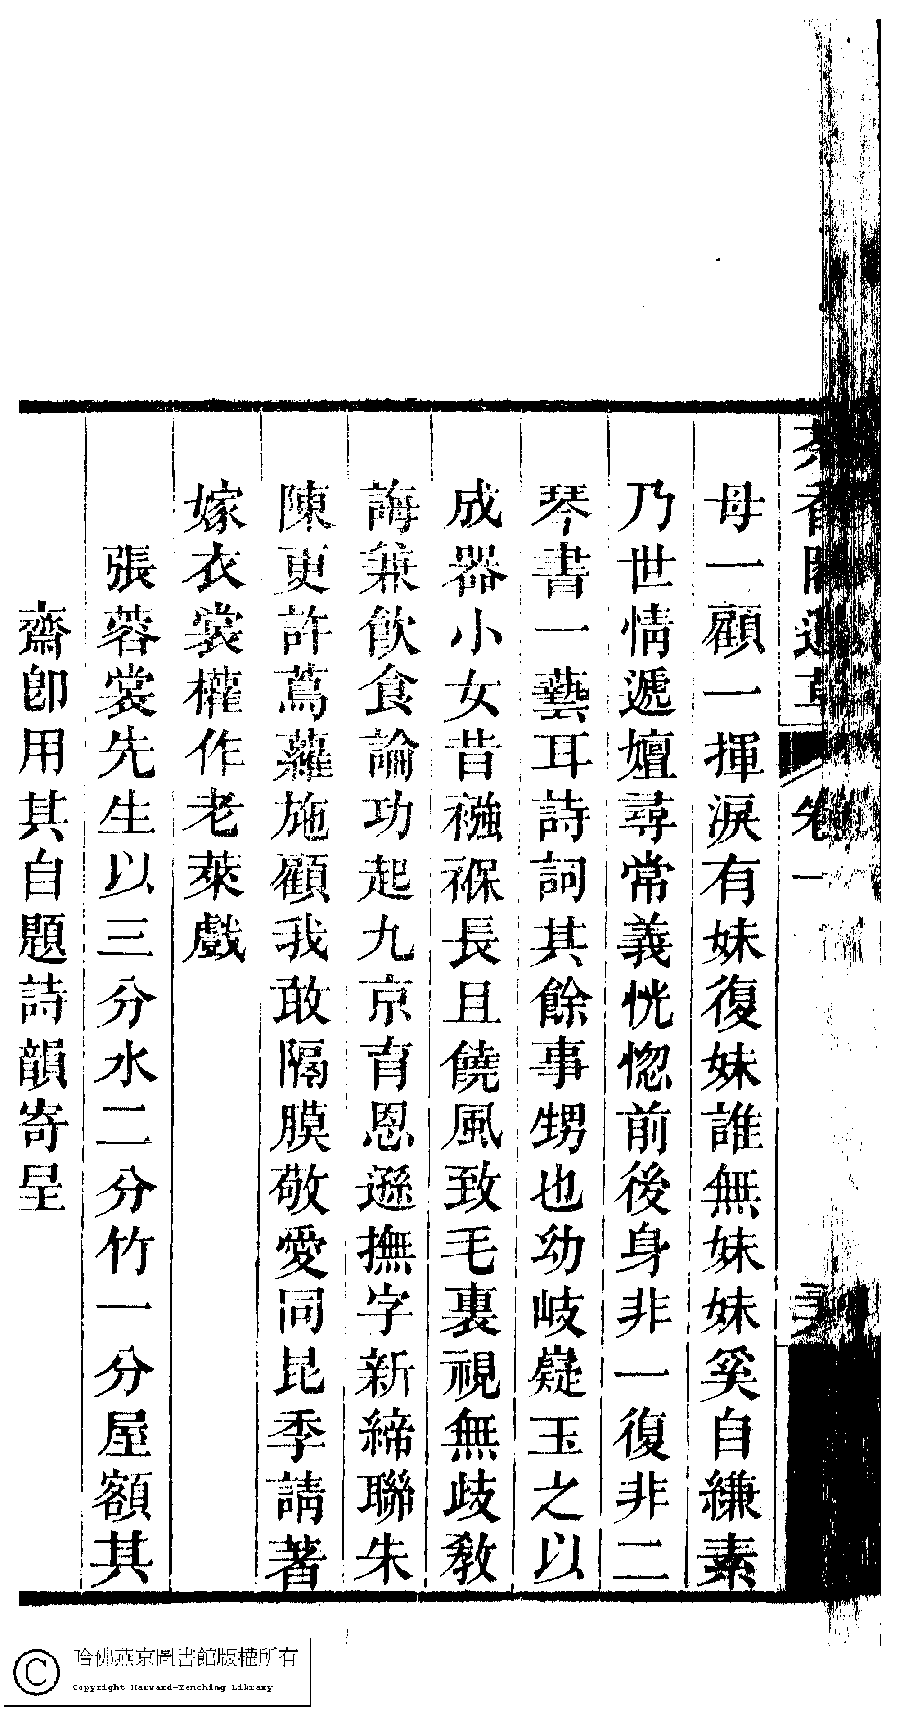 母一顧一揮淚有妹復妹誰無妹妹奚自縑素
乃世情遞嬗尋常義恍惚前後身非一復非二
琴書一藝耳詩詞其餘事甥也幼岐嶷玉之以
成器小女昔襁褓長且饒風致毛裏視無歧教
誨兼飲食論功起九京育恩遜撫字新締聯朱
陳更許蔦蘿施顧我敢隔膜敬愛同昆季請著
嫁衣裳權作老萊戲
張蓉裳先生以三分水二分竹一分屋額其
齋卽用其自題詩韻寄呈
卷一
哈佛燕京圖書館版權所有
Copyright Harvard-Yenching Library